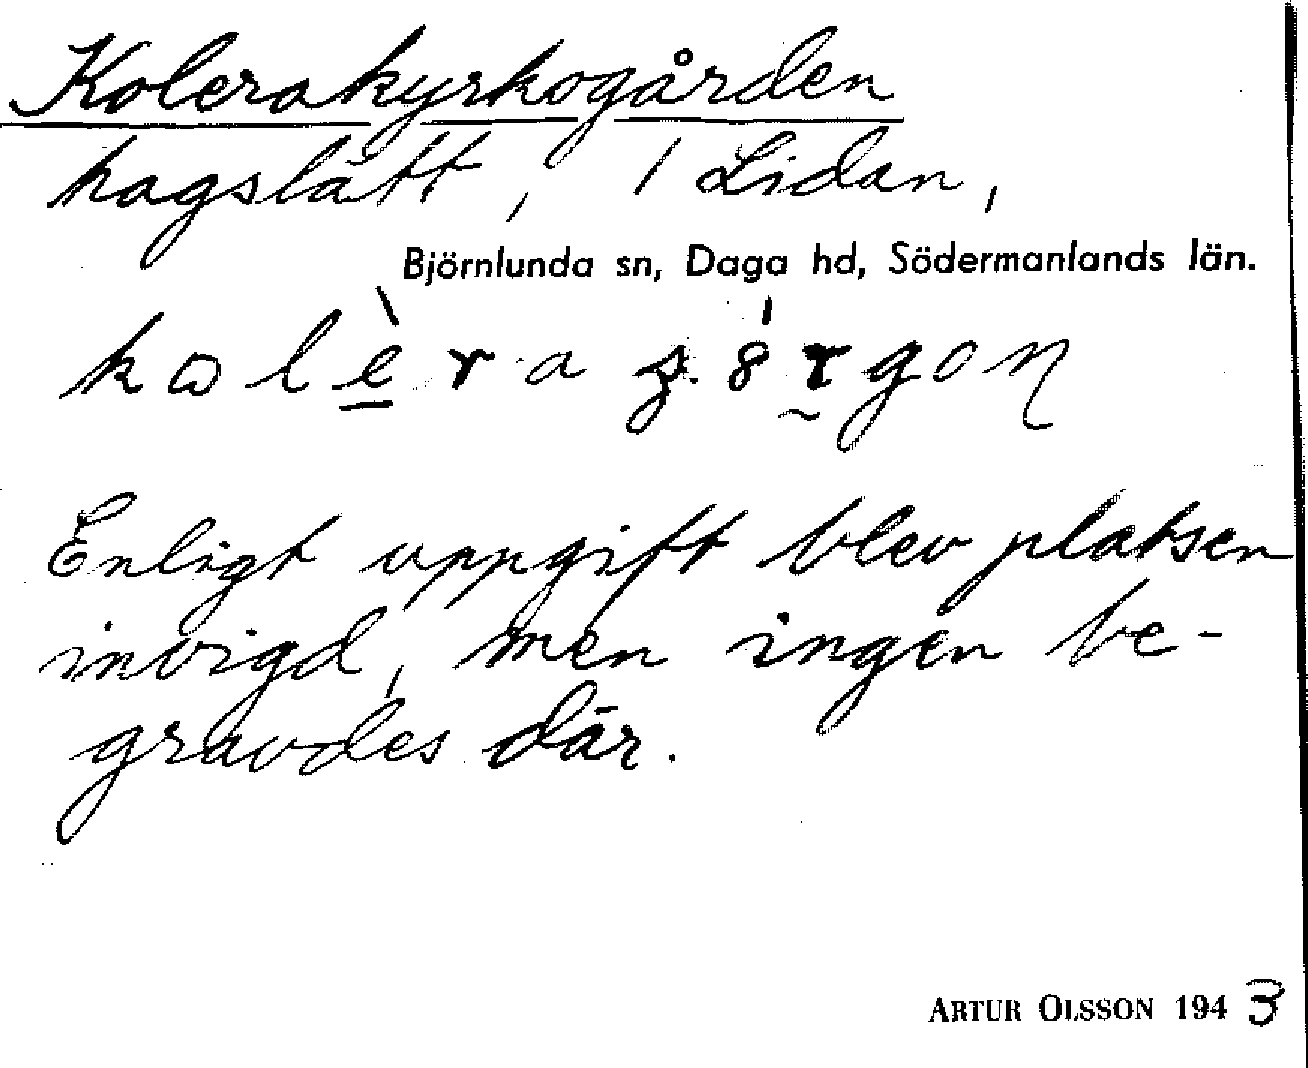 Kolerakyrkogården
hagslätt, / Lidan,
Björnlunda sn, Daga hd, Södermanlands län.
Enligt uppgift blev platsen
invigd, men ingen be-
gravdes där.
ARTUR OLSSON 1943